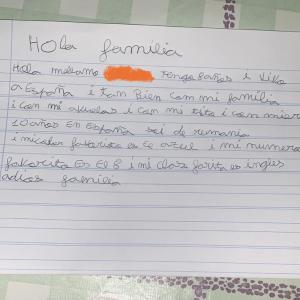 Hola familia
Hola mellamo tengo 8años i vivo
a España i tan Bien cam mi familia
i can mi abuelas i can mi tita i can
10 años En España soi de rumania
i micolor faborito es el azul i mi numero
faborito Es El 8 i mi clas farita es ingles
adios familia